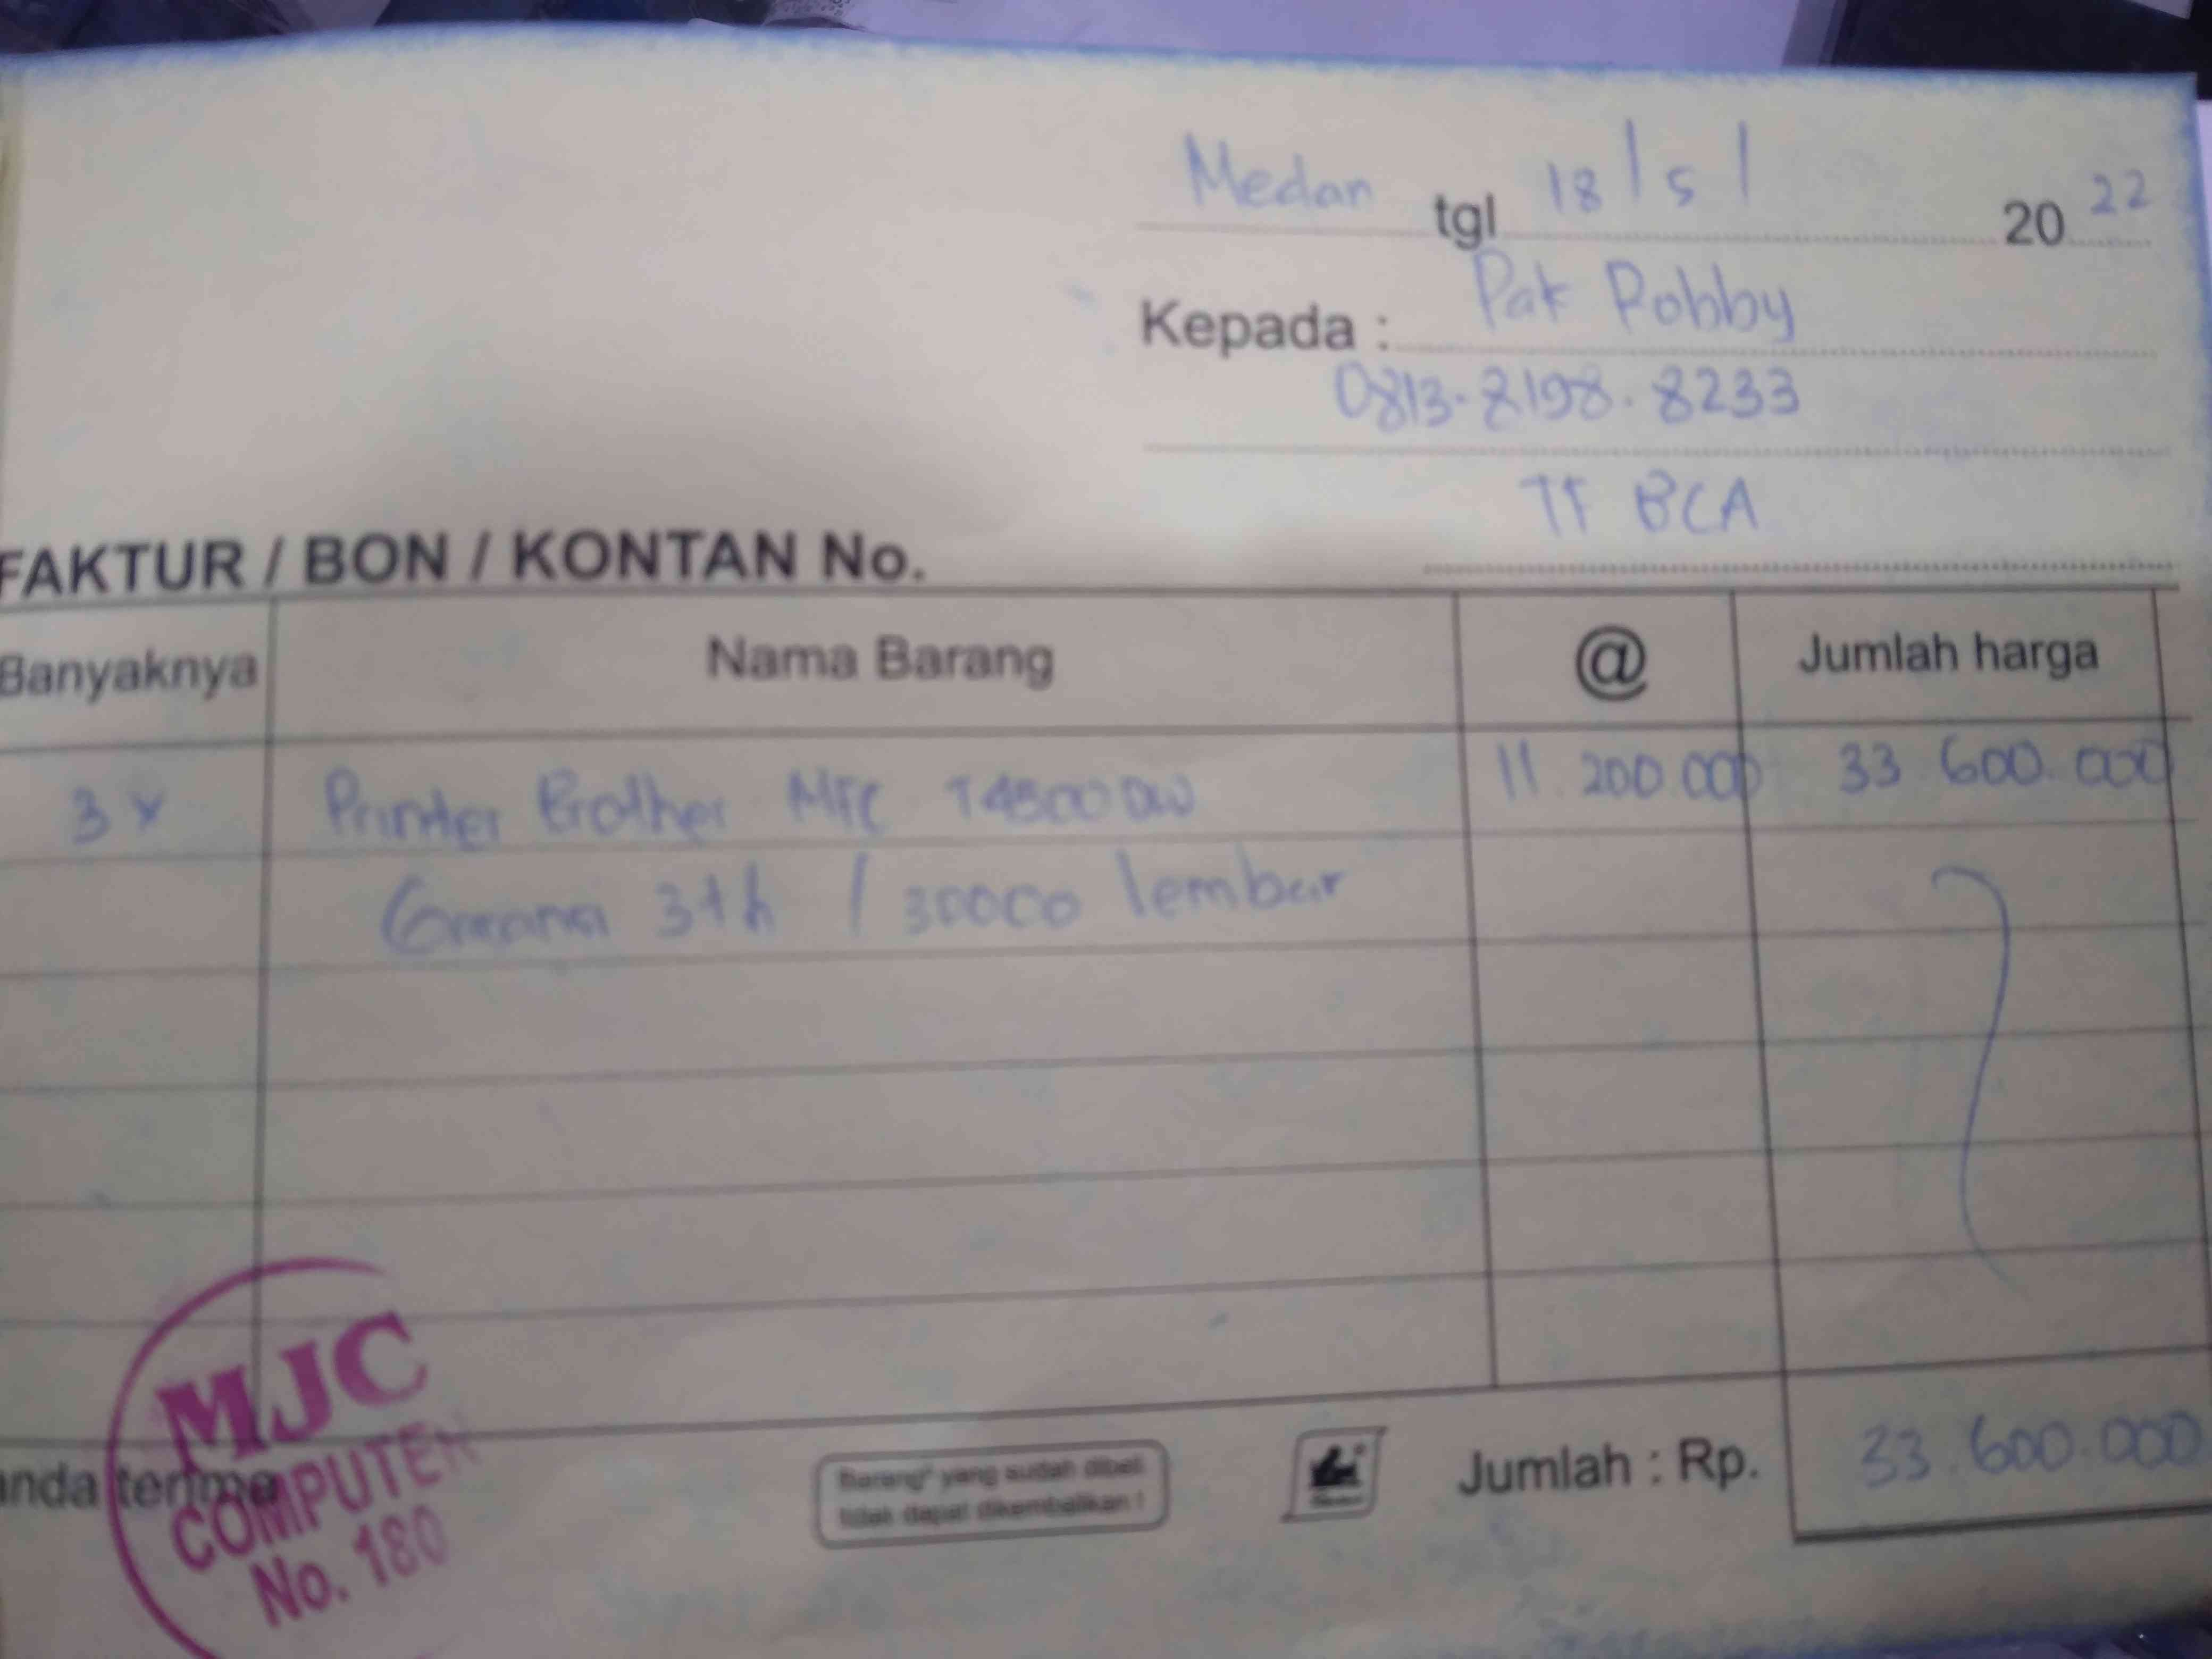 Medan tgl 18/5/ 2022
Kepada : Pak Robby
0813-8198.8233
TF BCA
FAKTUR / BON / KONTAN No.
Banyaknya Nama Barang @ Jumlah harga
3x Printer Brother MFC T4500DW 11.200.000 33.600.000
Garansi 3th / 30000 lembar
anda terima
Barang² yang sudah dibeli
tidak dapat dikembalikan !
Jumlah : Rp. 33.600.000
MJC
COMPUTER
No. 180